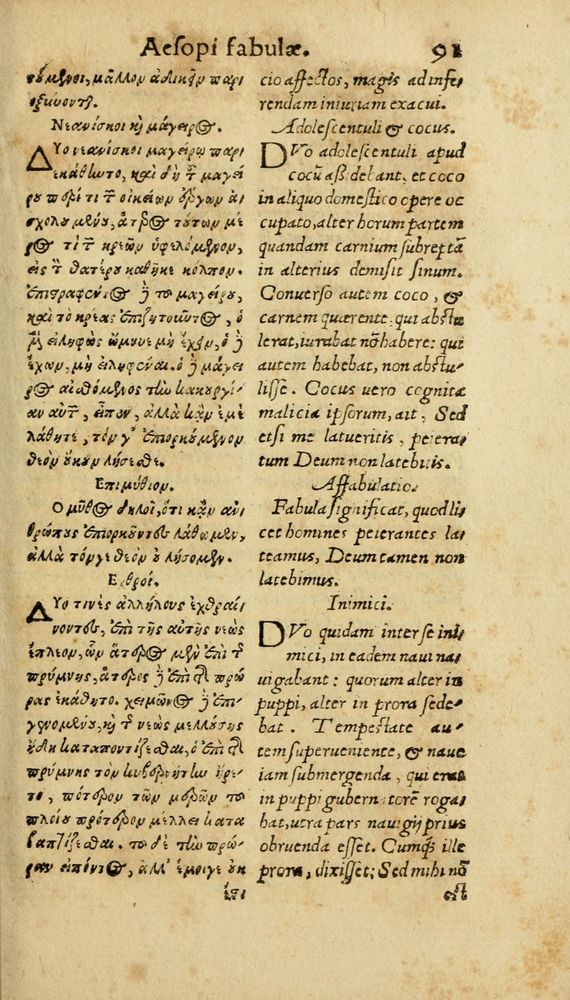 Aesopi fabulæ. 91
σύμενοι, μᾶλλον ἀδικεῖν παρι
οξύνοντ).
Νεανίσκοι κ̀ μάγειρος.
Δύο νεανίσκοι μαγείρω παρε
κάθηντο, καὶ δὴ τ͂ μαγεί
ρου περί τι τ͂ οἰκείων ἔργων ἀ
σχολουμένου, ἅτερος τούτων μέ
ρος τὶ τ͂ κρεῶν ὑφελόμενος,
εἰς τ̀ θατέρου καθῆκε κόλπον.
ἐπιστραφέντος ἢ το μαγείρου,
καὶ τὸ κρέας ἐπιζητοῦντος, ὁ
μὲν εἰληφὼς ὤμνυε μὴ ἔχειν, ὁ ἢ
ἔχων, μὴ εἰληφέναι. ὁ ἢ μάγει
ρος αἰσθόμενος τὴν κακουργί
αν αὐτ͂, εἶπεν, ἀλλὰ κἂν ἐμὲ
λάθητε, τόν γ' ἐπιορκούμενον
θεὸν οὐκουν λήσεσθε.
Επιμύθιον.
Ο μῦθος δηλοῖ, ὅτι κἂν ἀν
θρώπους ἐπιορκοῦντες λάθωμεν,
ἀλλὰ τόν γε θεὸν οὐ λήσομεν.
Εχθροί.
Δύο τινὲς ἀλλήλους ἐχθραί
νοντες, ἐπὶ τῆς αὐτῆς νεὼς
ἔπλεον, ὧν ἅτερος μὲν ἐπὶ τ͂
πρύμνης, ἅτερος ἢ ἐπὶ τ͂ πρώ
ρας ἐκάθητο. χειμῶνος ἐπι
γενομένου, κ̀ τ͂ νεὼς μελλούσης
ἤδη καταποντίζεσθαι, ὁ ἐπὶ τ͂
πρύμνης τὸν κυβερνήτην ἤρε
το, πότερον τῶν μερῶν το
πλοίου πρότερον μέλλει κατα
βαπτίζεσθαι. το δὲ τὴν πρῶ
ραν εἰπόντος, ἀλλ' ἔμοιγε οὐκ
cio affectos, magis ad infe,
rendam iniuriam exacui.
Adolescentuli & cocus.
DVo adolescentuli apud
cocũ aßidebant, et coco
in aliquo domestico opere oc
cupato, alter horum partem
quandam carnium subreptã
in alterius demisit sinum.
Conuerso autem coco, &
carnem quærente, qui abstu
lerat, iurabat nõ habere: qui
autem habebat, non abstu,
lisse. Cocus uero cognita
malicia ipsorum, ait, Sed
etsi me latueritis, peiera,
tum Deum non latebitis.
Affabulatio.
Fabula significat, quod li,
cet homines peierantes la,
teamus, Deum tamen non
latebimus.
Inimici.
DVo quidam inter se ini,
mici, in eadem naui na,
uigabant: quorum alter in
puppi, alter in prora sede,
bat. Tempestate au,
tem superueniente, & naue
iam submergenda, qui erat
in puppi gubernatorẽ roga,
bat, utra pars nauigij prius
obruenda esset. Cumq́; ille
prora, dixisset; Sed mihi nõ
est